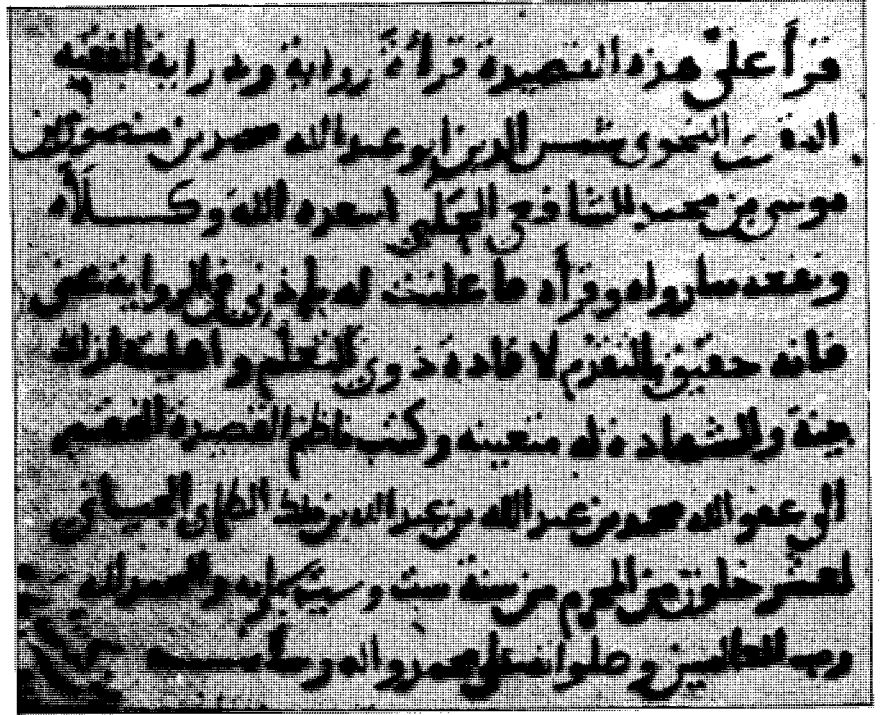 قرأ عليّ هذه القصيدة قراءة رواية ودراية الفقيه
النحوي شمس الدين ابو عبد الله محمد بن منصور بن
موسى بن محمد الشافعي الحلبي اسعده الله وكلأه
ونفعه بما رواه وقرأه ما علمت له باذني في الرواية عني
فانه حقيق بالتقدم لافادة ذوي التعلم واهليته لذلك
بينة والشهادة له متعينة وكتب ناظم القصيدة الفقير
الى عفو الله محمد بن عبد الله بن عبد الله بن ملك الطاي الجياني
لعشر خلون من المحرم من سنة ست وستين وستمايه والحمد لله
رب العالمين وصلواته على محمد واله وسلامه